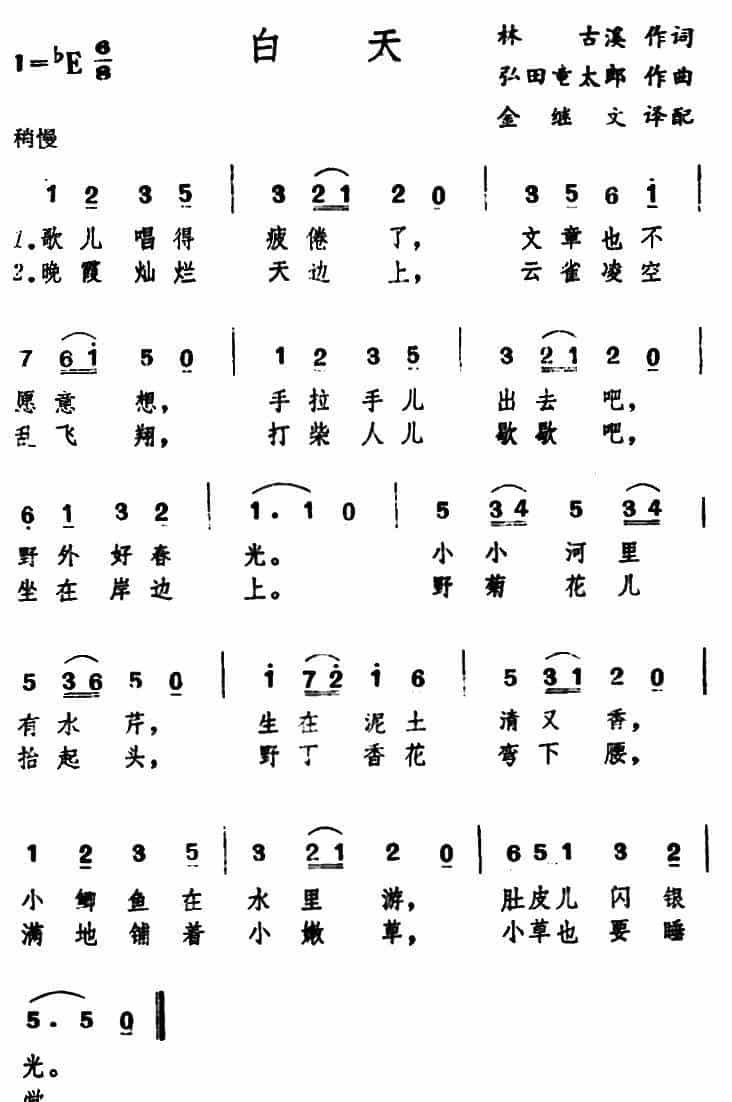 白 天
1=♭E 6/8
林 古溪 作词
弘田竜太郎 作曲
金 继 文 译配
稍慢
1 2 3 5 | 3 21 2 0 | 3 5 6 i |
1.歌儿 唱得 疲倦 了, 文章也不
2.晚霞 灿烂 天边 上, 云雀凌空
7 6i 5 0 | 1 2 3 5 | 3 21 2 0 |
愿意 想, 手拉手儿 出去 吧,
乱飞 翔, 打柴人儿 歇歇 吧,
6 1 3 2 | 1. 1 0 | 5 34 5 34 |
野外好春 光。 小小 河里
坐在岸边 上。 野菊 花儿
5 36 5 0 | i 72 i 6 | 5 31 2 0 |
有水 芹, 生在泥土 清又 香,
抬起 头, 野丁香花 弯下 腰,
1 2 3 5 | 3 21 2 0 | 6 5 1 3 2 |
小鲫鱼在 水里 游, 肚皮儿闪银
满地铺着 小嫩 草, 小草也要睡
5. 5 0 ‖
光。